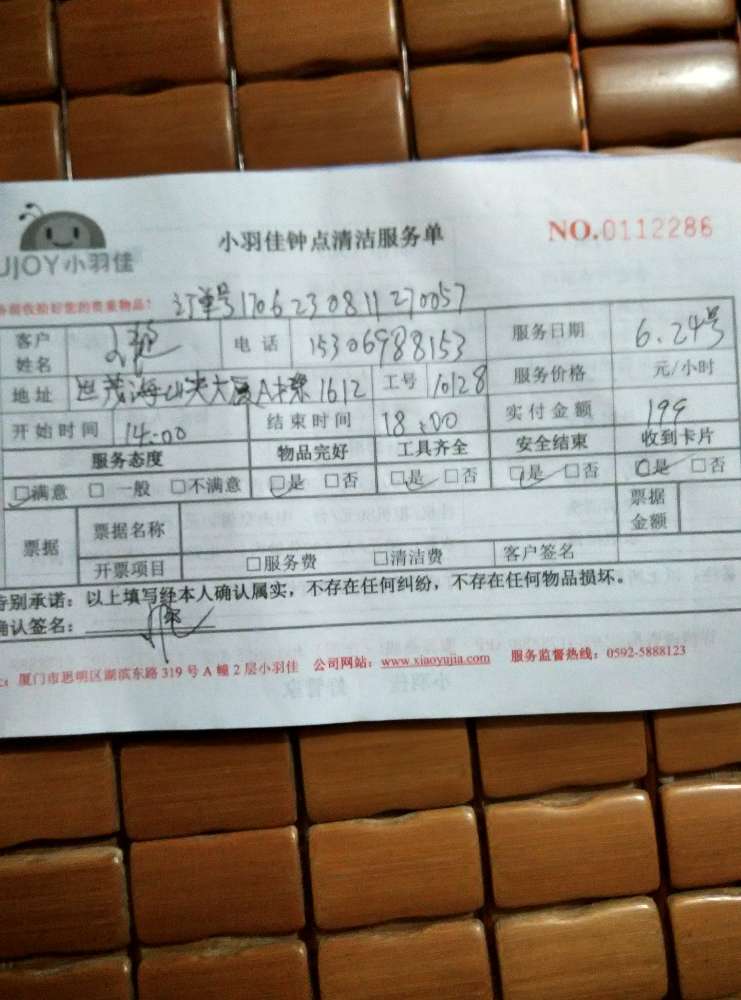 UJOY小羽佳
小羽佳钟点清洁服务单
NO.0112286
收拾好您的贵重物品! 订单号1706230811270057
客户姓名 电话 15306988153 服务日期 6.24号
地址 世茂海 大厦A 1612 工号 10128 服务价格 元/小时
开始时间 14:00 结束时间 18:00 实付金额 199
服务态度 物品完好 工具齐全 安全结束 收到卡片
□满意 □一般 □不满意 □是 □否 □是 □否 □是 □否 □是 □否
票据 票据名称 票据金额
开票项目 □服务费 □清洁费 客户签名
特别承诺:以上填写经本人确认属实,不存在任何纠纷,不存在任何物品损坏。
确认签名:
厦门市思明区湖滨东路319号A幢2层小羽佳 公司网站:www.xiaoyujia.com 服务监督热线:0592-5888123